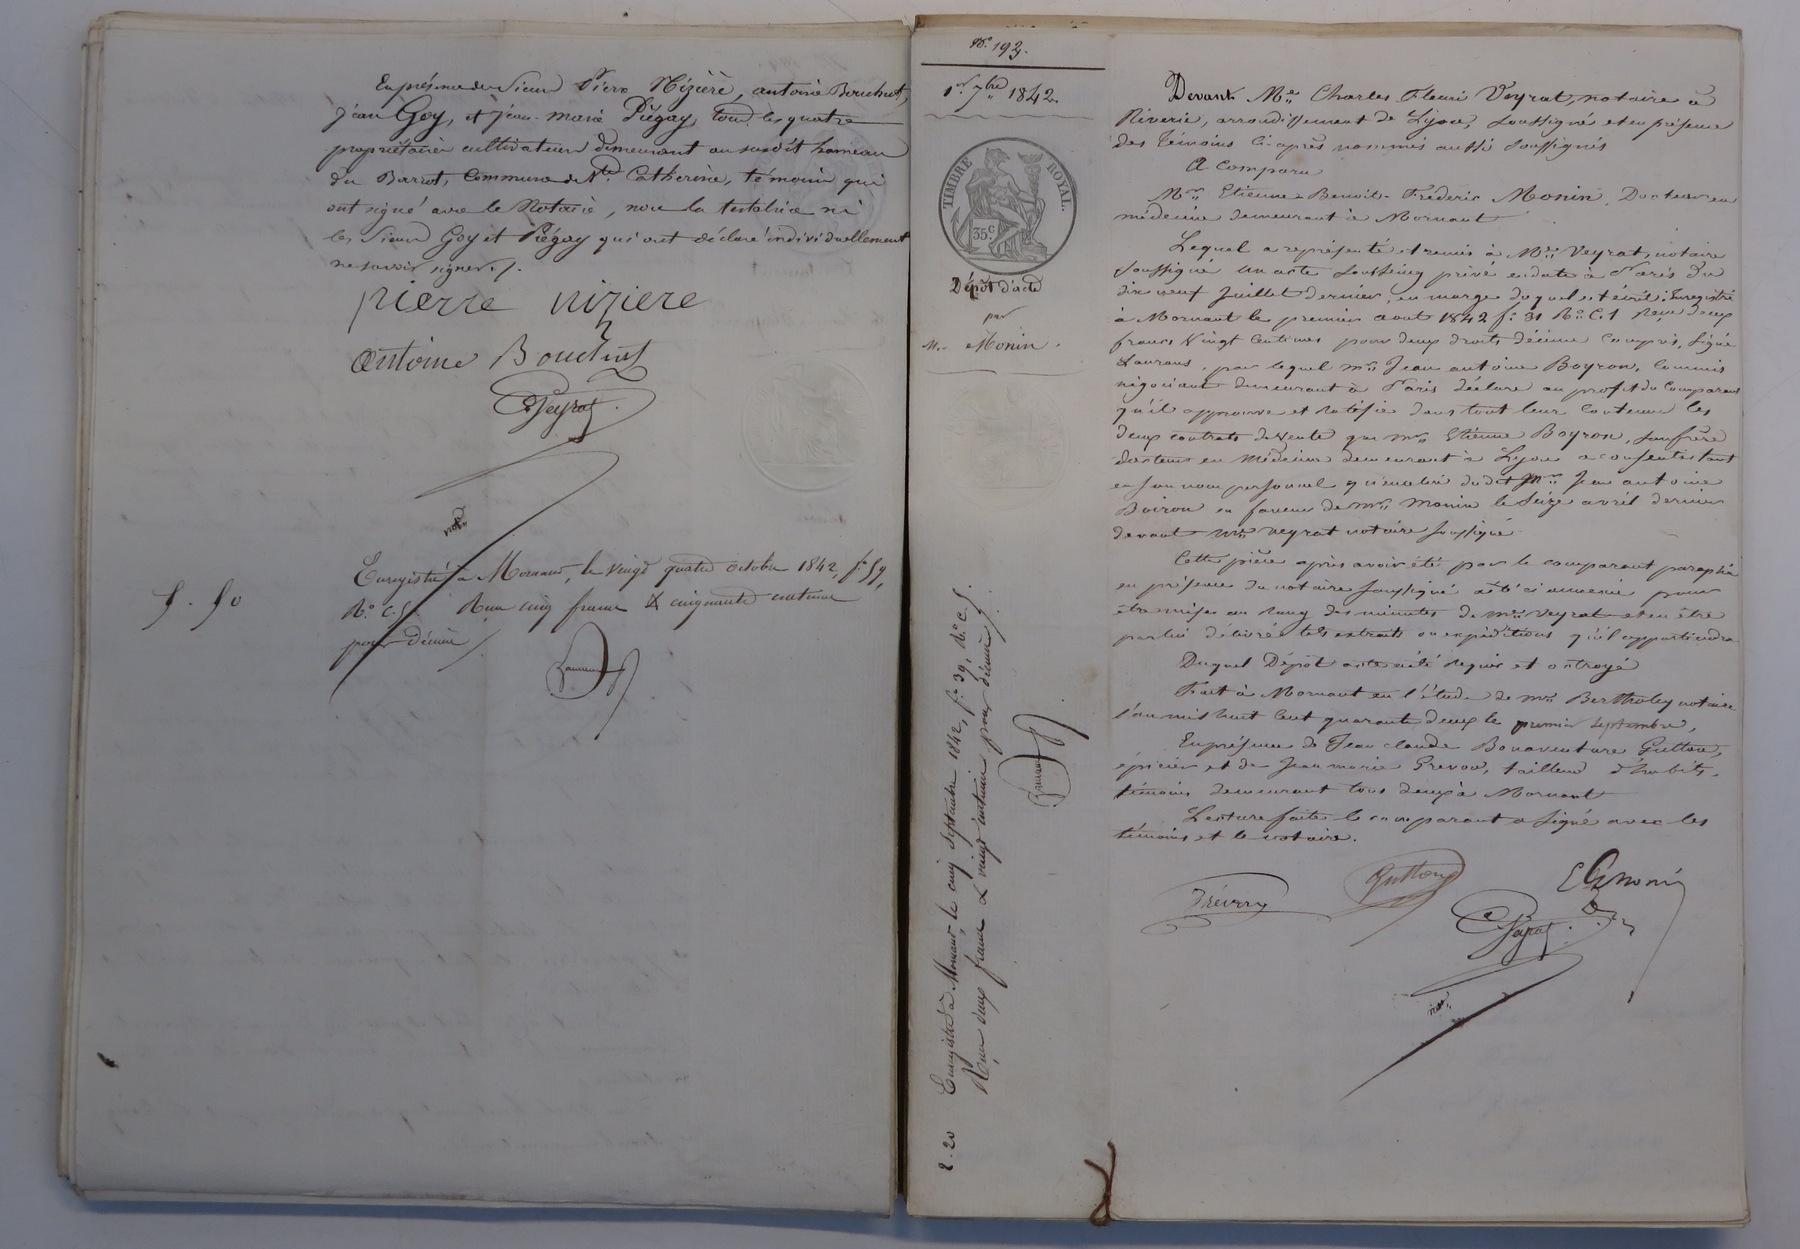 En présence des Sieurs Pierre Nizière, antoine Bouchut,
Jean Goy, et Jean-marie Piégay, tous les quatre
propriétaires cultivateurs demeurant au susdit hameau
du Barrot, commune de Ste. Catherine, témoins qui
ont signé avec le Notaire, non la testatrice ni
les Sieurs Goy et Piégay qui ont déclaré individuellement
ne savoir signer ./.
pierre niziere
antoine Bouchut
C Veyrat
not.
Enregistré à Mornant, le vingt quatre octobre 1842, f° 59,
R° C. 5. Reçu cinq francs & cinquante centimes
5 . 50
pour décime /.
Laurans
N° 193.
1er 7bre 1842.
TIMBRE ROYAL.
35 c.
Dépôt d'acte
par
M. Monin.
Enregistré à Mornant, le cinq septembre 1842, f° 39, R° C. 5.
Reçu deux francs & vingt centimes pour décime /.
2 . 20
Laurans
Devant Me Charles Fleuri Veyrat, notaire à
Riverie, arrondissement de Lyon, soussigné et en présence
des témoins ci-après nommés aussi soussignés
A Comparu
Mr. Etienne-Benoit-Frédéric Monin, Docteur en
médecine demeurant à Mornant
Lequel a représenté et remis à Me Veyrat, notaire
soussigné un acte sous seing privé en date à Paris du
dix neuf Juillet dernier, en marge duquel est écrit : Enregistré
à Mornant le premier aout 1842 f° 31 R° C. 1 Reçu deux
francs vingt centimes pour deux droits décime compris, signé
Laurans, par lequel mr. Jean antoine Boyron, commis
négociant demeurant à Paris déclare au profit du comparant
qu'il approuve et ratifie dans tout leur contenu les
deux contrats de vente que mr. Etienne Boyron, son frère
docteur en Médecine demeurant à Lyon a consentis tant
en son nom personnel qu'en celui du dit mr. Jean antoine
Boiron en faveur de mr. Monin le seize avril dernier
devant me veyrat notaire soussigné
Cette pièce après avoir été par le comparant paraphée
en présence du notaire soussigné a été ci annexée pour
être mise au rang des minutes de me Veyrat et en être
par lui délivré tels extraits ou expéditions qu'il appartiendra
Duquel Dépôt acte a été requis et octroyé
Fait à Mornant en l'étude de me Bertholey notaire
l'an mil huit cent quarante deux le premier septembre,
En présence de Jean claude Bonaventure Gutton,
épicier et de Jean marie Prevon, tailleur d'habits,
témoins demeurant tous deux à Mornant
Lecture faite le comparant a signé avec les
témoins et le notaire.
Gutton
E Monin
C Veyrat
not.